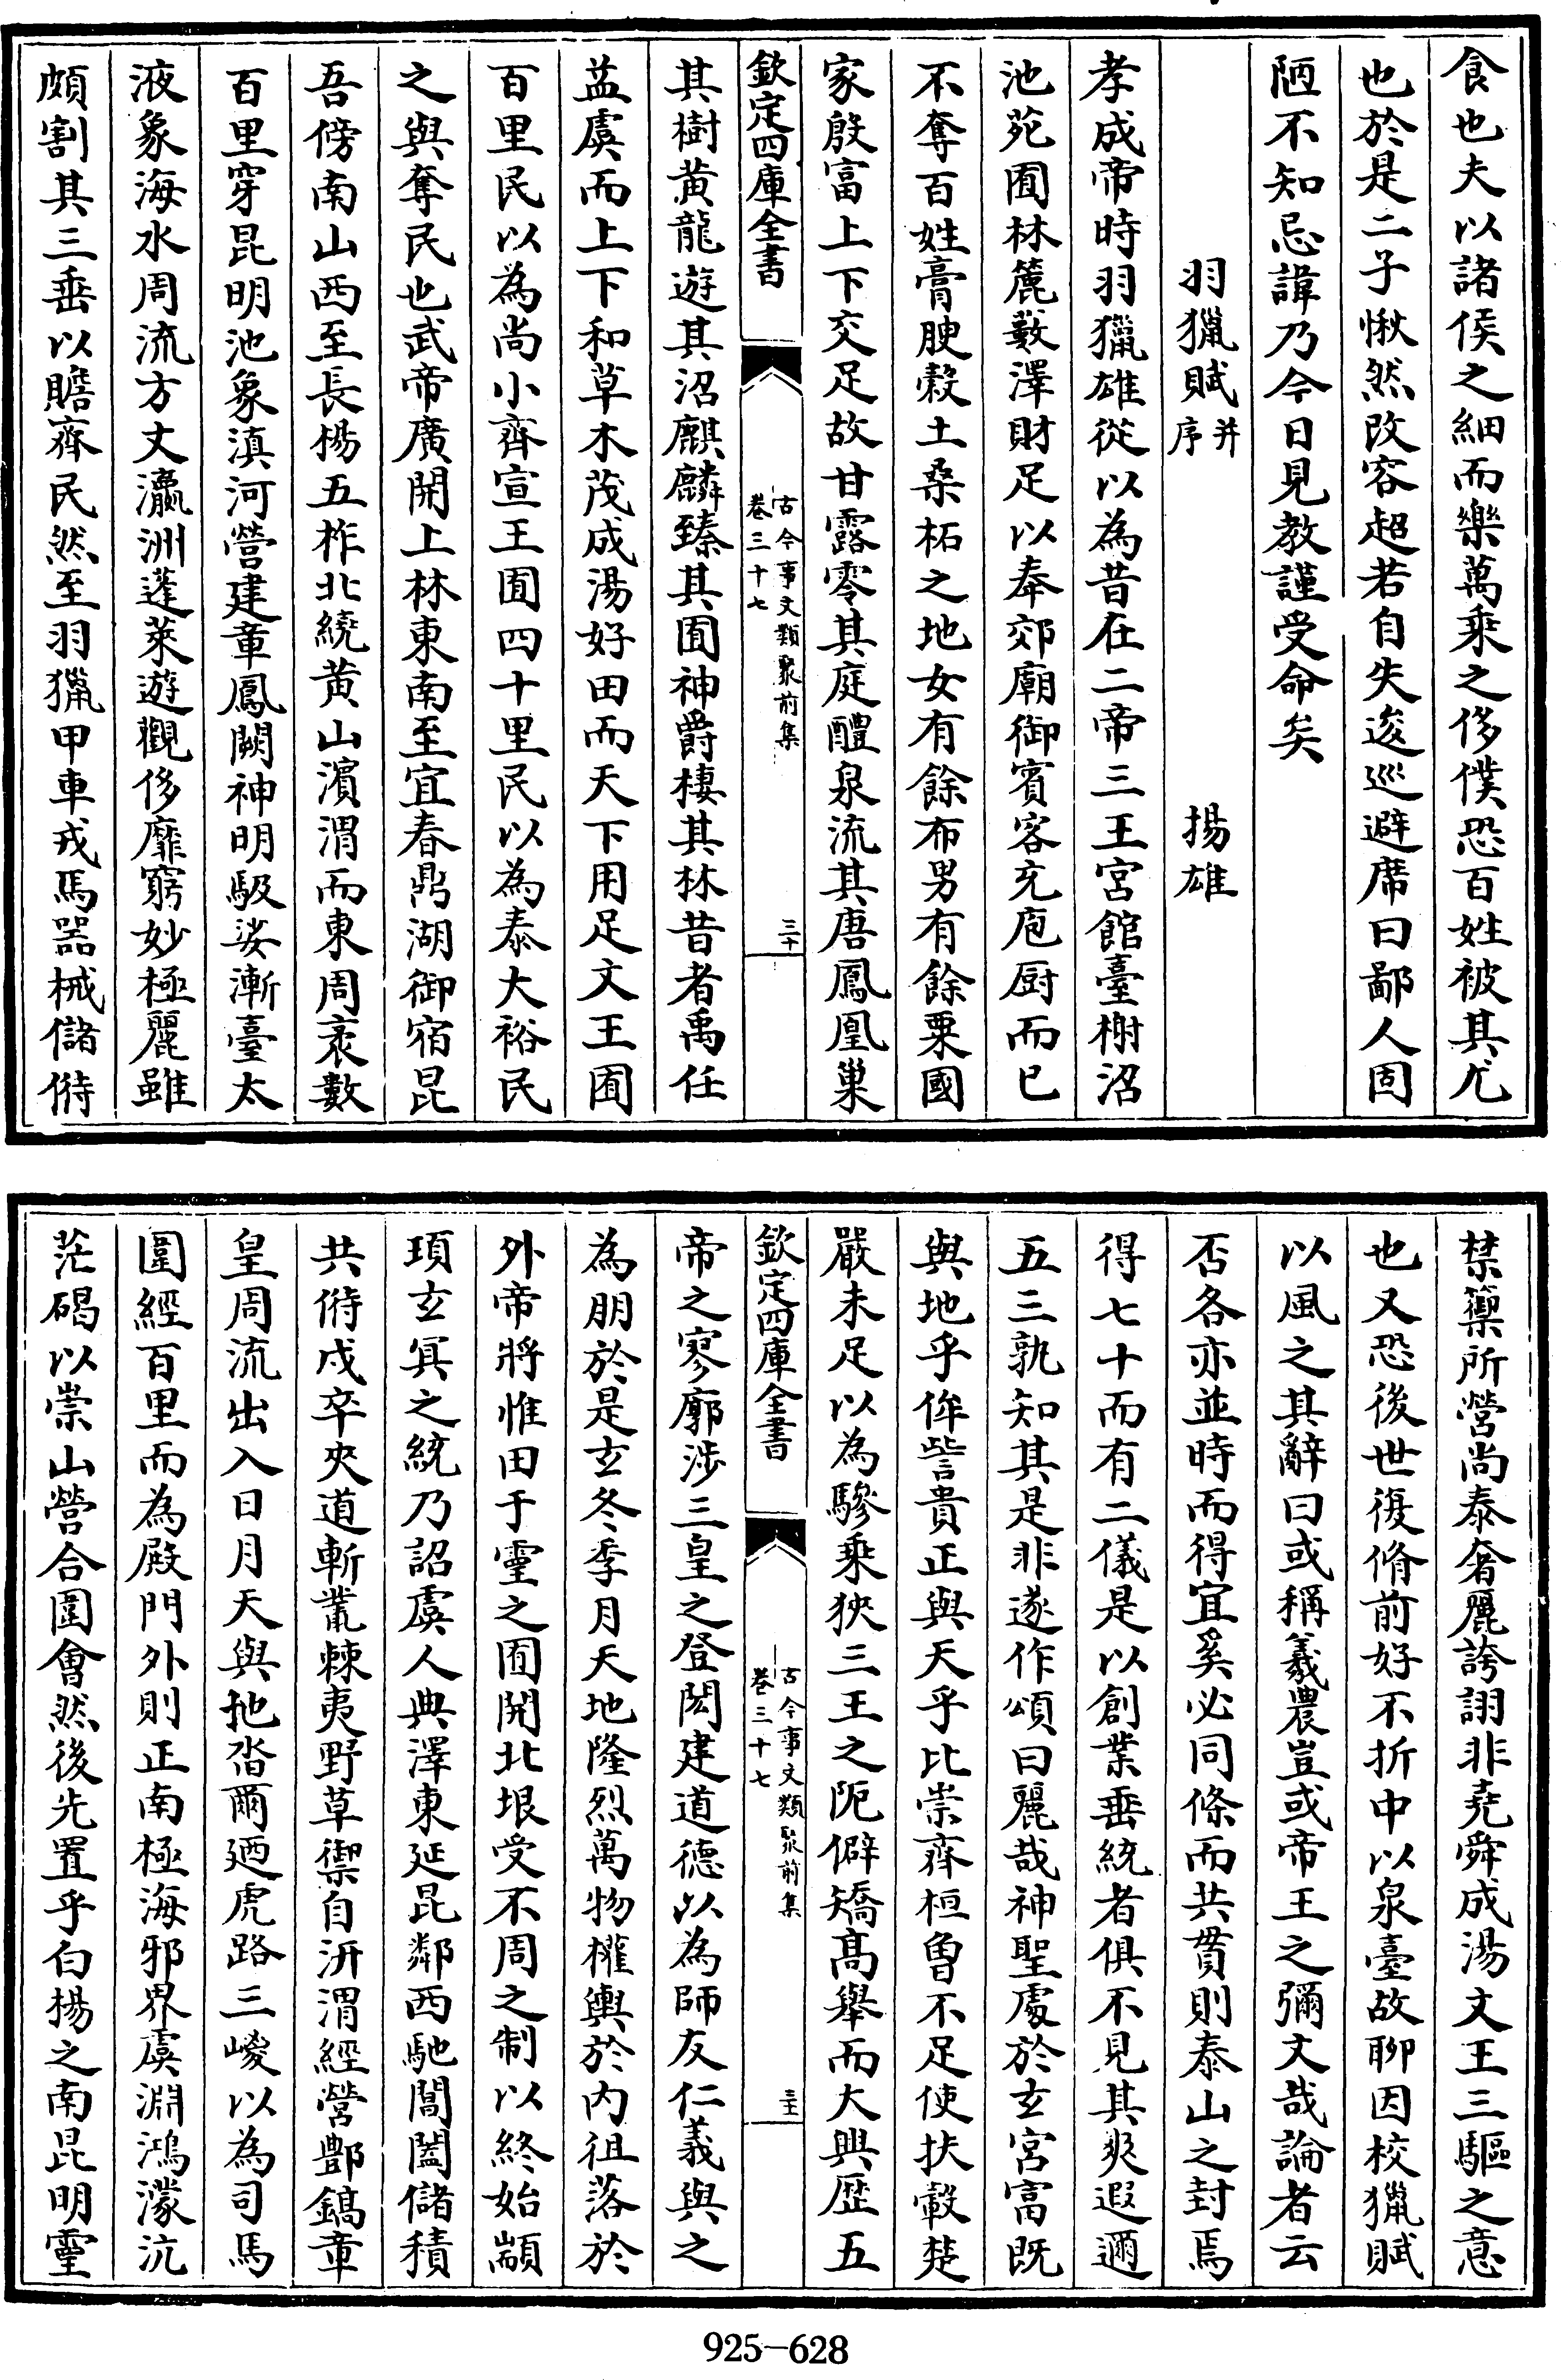 食也夫以諸侯之細而樂萬乘之侈僕恐百姓被其尤
也於是二子愀然改容超若自失逡巡避席曰鄙人固
陋不知忌諱乃今日見教謹受命矣
羽獵賦并序 揚雄
孝成帝時羽獵雄從以為昔在二帝三王宫館臺榭沼
池苑囿林麓藪澤財足以奉郊廟御賓客充庖厨而已
不奪百姓膏腴穀土桑柘之地女有餘布男有餘粟國
家殷富上下交足故甘露零其庭醴泉流其唐鳳凰巢
欽定四庫全書
古今事文類聚前集
卷三十七
三十
其樹黄龍遊其沼麒麟臻其囿神爵棲其林昔者禹任
益虞而上下和草木茂成湯好田而天下用足文王囿
百里民以為尚小齊宣王囿四十里民以為泰大裕民
之與奪民也武帝廣開上林東南至宜春鼎湖御宿昆
吾傍南山西至長楊五柞北繞黄山濱渭而東周袤數
百里穿昆明池象滇河營建章鳳闕神明馺娑漸臺太
液象海水周流方丈瀛洲蓬萊遊觀侈靡窮妙極麗雖
頗割其三垂以贍齊民然至羽獵甲車戎馬器械儲偫
禁籞所營尚泰奢麗誇詡非堯舜成湯文王三驅之意
也又恐後世復脩前好不折中以泉臺故聊因校獵賦
以風之其辭曰或稱羲農豈或帝王之彌文哉論者云
否各亦並時而得宜奚必同條而共貫則泰山之封焉
得七十而有二儀是以創業垂統者俱不見其爽遐邇
五三孰知其是非遂作頌曰麗哉神聖處於玄宫富既
與地乎侔訾貴正與天乎比崇齊桓曾不足使扶轂楚
嚴未足以為驂乘狹三王之阨僻矯髙舉而大興歴五
欽定四庫全書
古今事文類聚前集
卷三十七
三十一
帝之寥廓涉三皇之登閎建道德以為師友仁義與之
為朋於是玄冬季月天地隆烈萬物權輿於内徂落於
外帝將惟田于靈之囿開北垠受不周之制以終始顓
頊玄冥之統乃詔虞人典澤東延昆鄰西馳閶闔儲積
共偫戍卒夾道斬叢棘夷野草禦自汧渭經營酆鎬章
皇周流出入日月天與地沓爾廼虎路三嵕以為司馬
圍經百里而為殿門外則正南極海邪界虞淵鴻濛沆
茫碣以崇山營合圍會然後先置乎白楊之南昆明靈
925-628